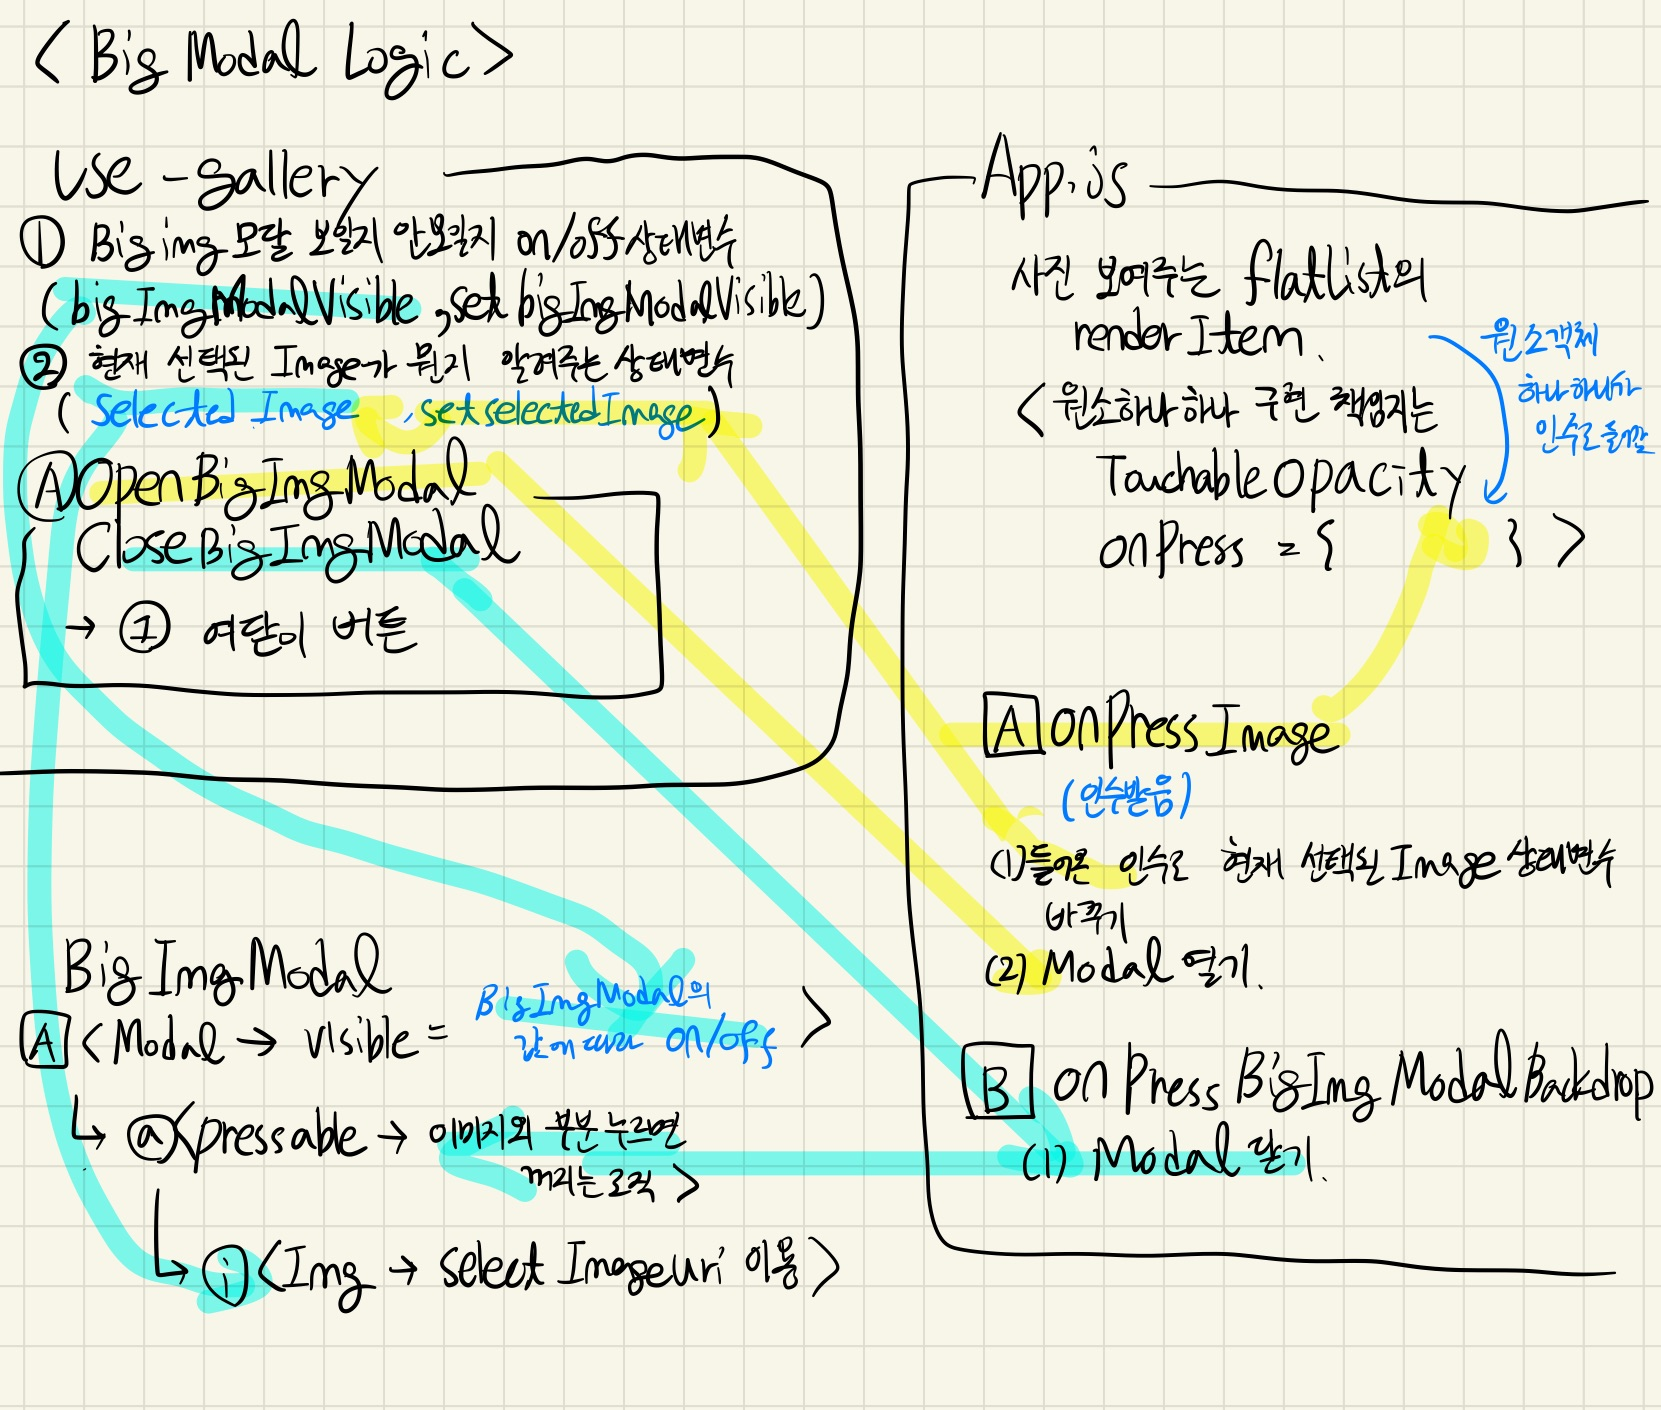 < Big Modal Logic >
use-gallery
① Big img 모달 보일지 안보일지 on/off 상태변수
(bigImgModalVisible, setbigImgModalVisible)
② 현재 선택된 Image가 뭔지 알려주는 상태변수
( Selected Image, setselectedImage)
Ⓐ OpenBigImgModal
CloseBigImgModal
→ ① 여닫이 버튼
BigImgModal
A < Modal → visible = BigImgModal의
값에 따라 on/off >
↳ ⓐ < pressable → 이미지외 부분 누르면
꺼지는 로직 >
↳ ⓘ < Img → select Imageuri 이용 >
App.js
사진 보여주는 flatList의
renderItem.
원소객체
하나하나가
인수로 들어감
< 원소하나하나 구현 책임지는
TouchableOpacity
onPress = { } >
A onPressImage
(인수받음)
(1) 들어온 인수로 현재 선택된 Image 상태변수
바꾸기
(2) Modal 열기.
B onPressBigImgModalBackdrop
(1) Modal 닫기.